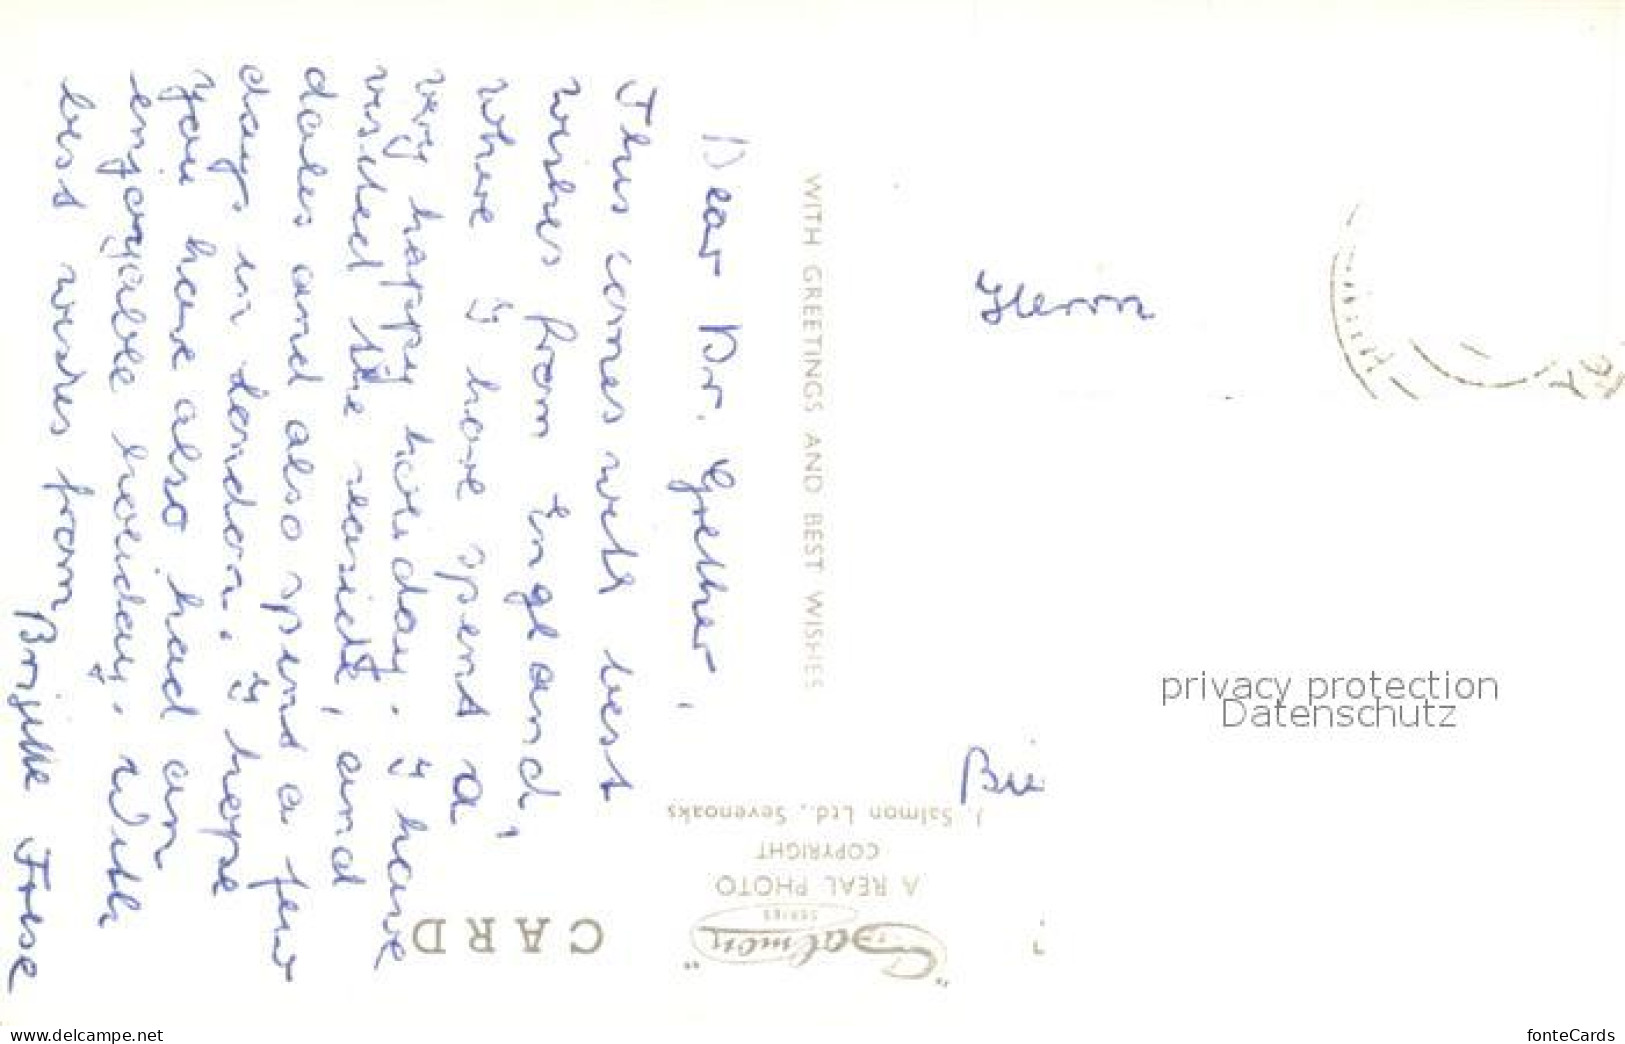 Dear Dr. Grether,
This comes with best
wishes from England,
where I have spent a
very happy holiday. I have
visited the seaside, and
dales and also spent a few
days in London. I hope
you have also had an
enjoyable holiday. With
best wishes from
Brigitte Friese
WITH GREETINGS AND BEST WISHES
Herrn
privacy protection
Datenschutz
J. Salmon Ltd., Sevenoaks
COPYRIGHT
A REAL PHOTO
SERIES
"Salmon"
CARD
www.delcampe.net
fonteCards